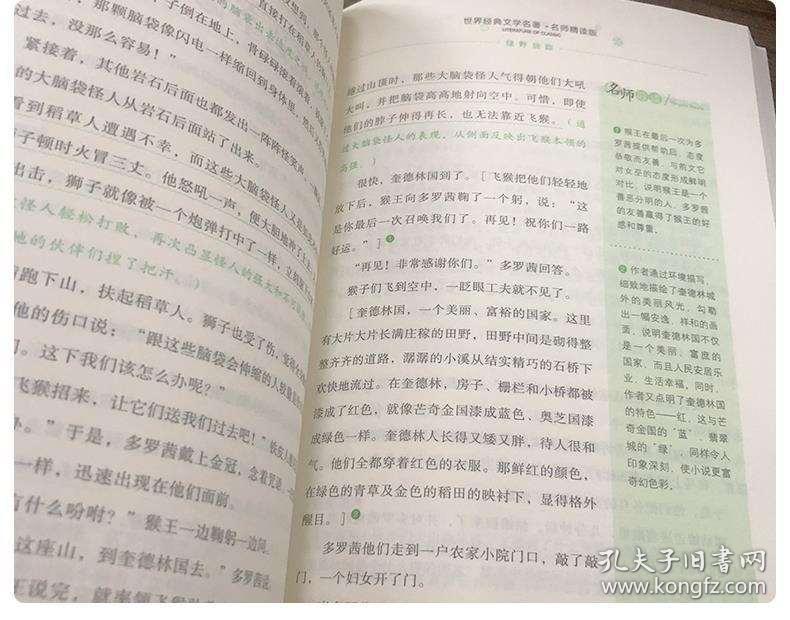 子倒在地上，骨碌碌滚着
直接打在稻草人的
，那颗脑袋像闪电一样缩回到身体里，然后
过去，没那么容易！”
紧接着，其他岩石后面也都发出一阵阵怪笑声
大脑袋怪人从岩石后面站了出来。
看到稻草人遭遇不幸，而这些大脑袋怪人又
子顿时火冒三丈。他怒吼一声，便大胆地冲了上
出击，狮子就像被一个炮弹打中了一样，立刻
怪人轻松打败，再次凸显怪人的强大和
他的伙伴们捏了把汗。
跑下山，扶起稻草人。狮子也受了伤，
他的伤口说：“跟这些脑袋会伸缩的人
门。这下我们该怎么办呢？”
飞猴招来，让它们送我们过去吧！”铁皮人
办。”于是，多罗茜戴上金冠，念着咒语，
一样，迅速出现在他们面前。
有什么吩咐？”猴王一边鞠躬一边问
这座山，到奎德林国去。”多罗茜
王说完，就率领飞猴
世界经典文学名著·名师精读版
LITERATURE OF CLASSIC
绿野仙踪
越过山顶时，那些大脑袋怪人气得朝他们大吼
大叫，并把脑袋高高地射向空中。可惜，即使
他们的脖子伸得再长，也无法靠近飞猴。（通
过大脑袋怪人的表现，从侧面反映出飞猴本领的
高强。）
很快，奎德林国到了。[飞猴把他们轻轻地
放下后，猴王向多罗茜鞠了一个躬，说：“这
是你最后一次召唤我们了。再见！祝你们一路
好运。”]❶
“再见！非常感谢你们。”多罗茜回答。
猴子们飞到空中，一眨眼工夫就不见了。
[奎德林国，一个美丽、富裕的国家。这里
有大片大片长满庄稼的田野，田野中间是砌得整
整齐齐的道路，潺潺的小溪从结实精巧的石桥下
欢快地流过。在奎德林，房子、栅栏和小桥都被
漆成了红色，就像芒奇金国漆成蓝色、奥芝国漆
成绿色一样。奎德林人长得又矮又胖，待人很和
气。他们全都穿着红色的衣服。那鲜红的颜色，
在绿色的青草及金色的稻田的映衬下，显得格外
醒目。]❷
多罗茜他们走到一户农家小院门口，敲了敲
门，一个妇女开了门。
名师
❶ 猴王在最后一次为多
罗茜提供帮助后，态度
恭敬而友善，与前文它
对女巫的态度形成鲜明
对比，说明猴王是一个
善恶分明的人，多罗茜
的友善赢得了猴王的好
感和尊重。
❷ 作者通过环境描写，
细致地描绘了奎德林城
外的美丽风光，勾勒
出一幅安逸、祥和的画
面，说明奎德林国不仅
是一个美丽、富庶的
国家，而且人民安居乐
业，生活幸福，同时，
作者又点明了奎德林国
的特色——红，这与芒
奇金国的“蓝”、翡翠
城的“绿”，同样令人
印象深刻，使小说更富
奇幻色彩。
孔夫子旧书网
www.kongfz.com